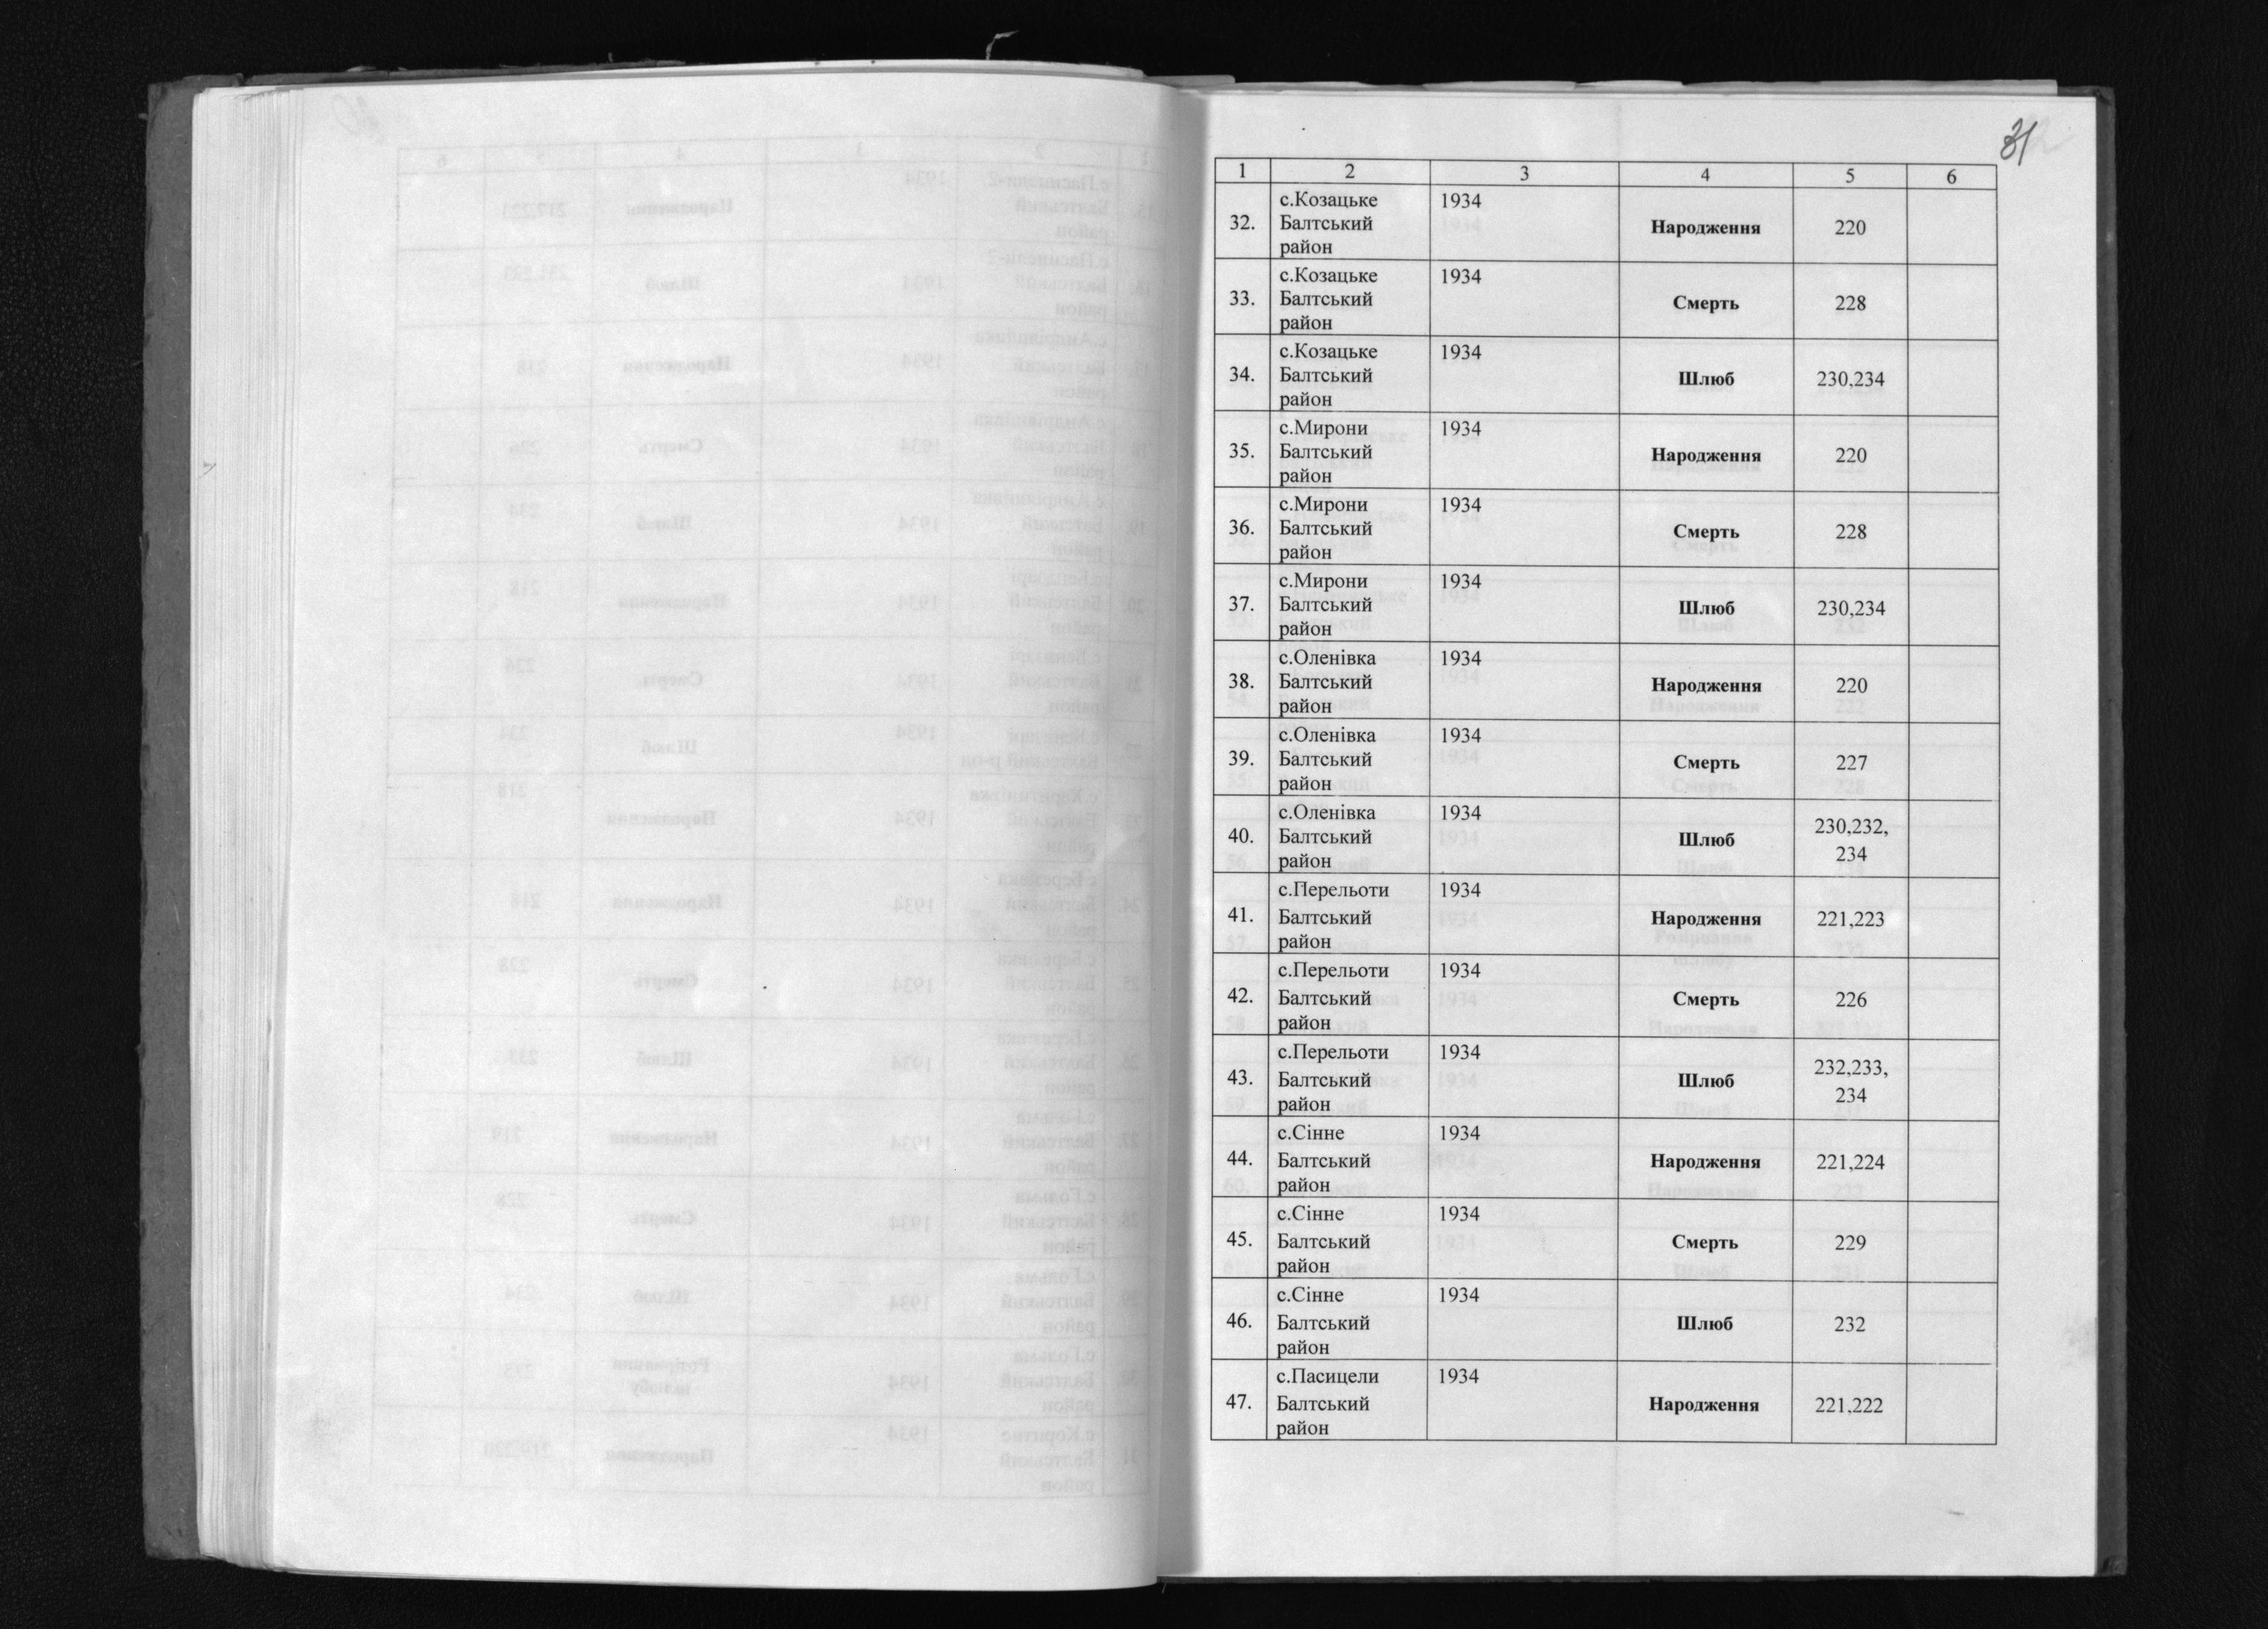 31
1 2 3 4 5 6
32. с.Козацьке 1934 Народження 220
Балтський
район
33. с.Козацьке 1934 Смерть 228
Балтський
район
34. с.Козацьке 1934 Шлюб 230,234
Балтський
район
35. с.Мирони 1934 Народження 220
Балтський
район
36. с.Мирони 1934 Смерть 228
Балтський
район
37. с.Мирони 1934 Шлюб 230,234
Балтський
район
38. с.Оленівка 1934 Народження 220
Балтський
район
39. с.Оленівка 1934 Смерть 227
Балтський
район
40. с.Оленівка 1934 Шлюб 230,232,
Балтський 234
район
41. с.Перельоти 1934 Народження 221,223
Балтський
район
42. с.Перельоти 1934 Смерть 226
Балтський
район
43. с.Перельоти 1934 Шлюб 232,233,
Балтський 234
район
44. с.Сінне 1934 Народження 221,224
Балтський
район
45. с.Сінне 1934 Смерть 229
Балтський
район
46. с.Сінне 1934 Шлюб 232
Балтський
район
47. с.Пасицели 1934 Народження 221,222
Балтський
район